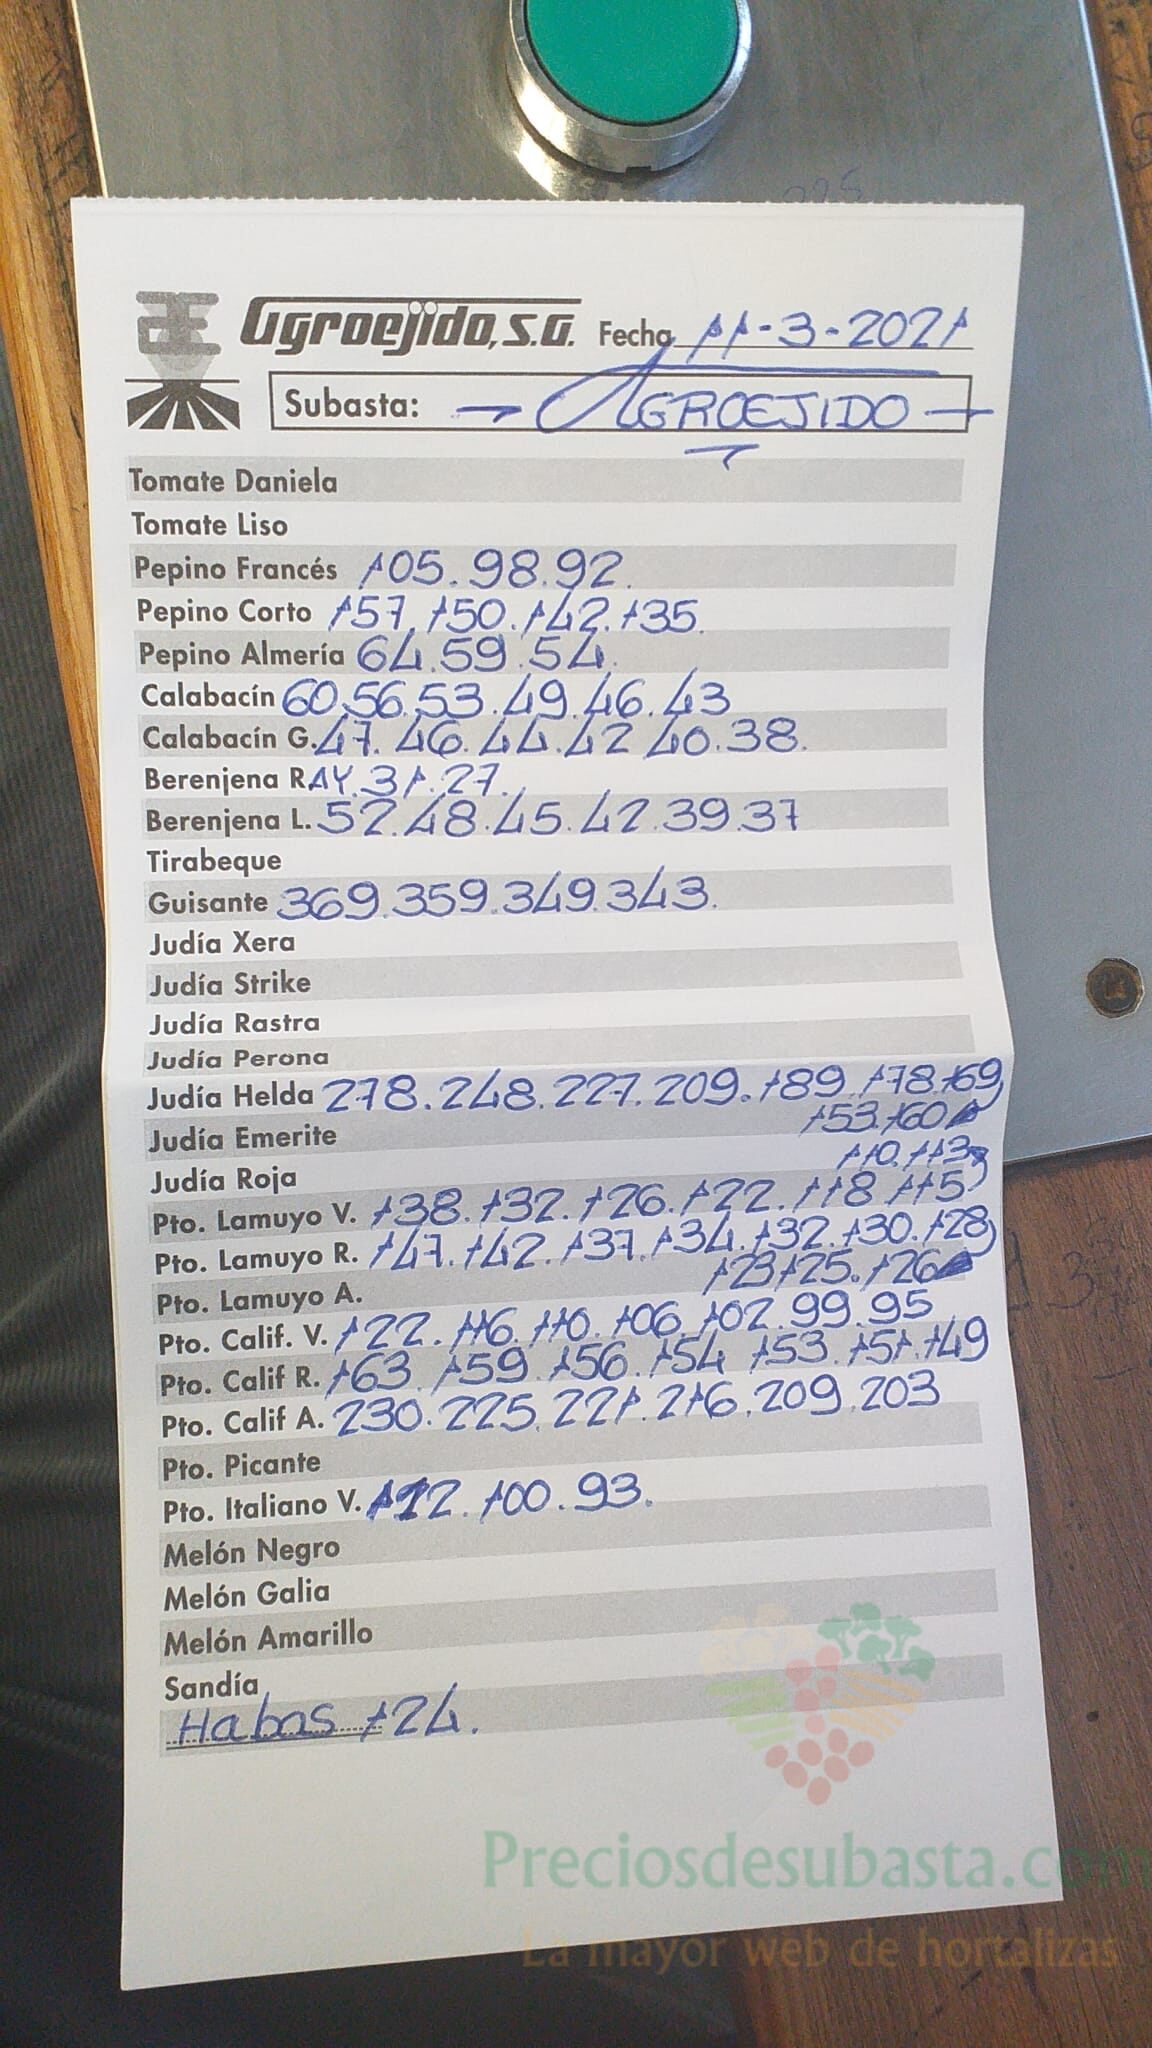 Agroejido, S.A. Fecha 11-3-2021
Subasta: AGROEJIDO
Tomate Daniela
Tomate Liso
Pepino Francés 105.98.92.
Pepino Corto 157.150.142.135.
Pepino Almería 64.59.54.
Calabacín 60.56.53.49.46.43
Calabacín G. 47.46.44.42 40.38.
Berenjena RAY.31.27.
Berenjena L. 52.48.45.42.39.37
Tirabeque
Guisante 369.359.349.343.
Judía Xera
Judía Strike
Judía Rastra
Judía Perona
Judía Helda 278.248.227.209.189.178.169
153.160
Judía Emerite
110.113
Judía Roja
Pto. Lamuyo V. 138.132.126.122.118 115
Pto. Lamuyo R. 147.142.137.134.132.130.128
123 125.126
Pto. Lamuyo A.
Pto. Calif. V. 122.116.110.106.102.99.95
Pto. Calif R. 163.159.156.154 153.151.149
Pto. Calif A. 230.225.221.216.209.203
Pto. Picante
Pto. Italiano V. 112.100.93.
Melón Negro
Melón Galia
Melón Amarillo
Sandía
Habas 124.
Preciosdesubasta.com
La mayor web de hortalizas